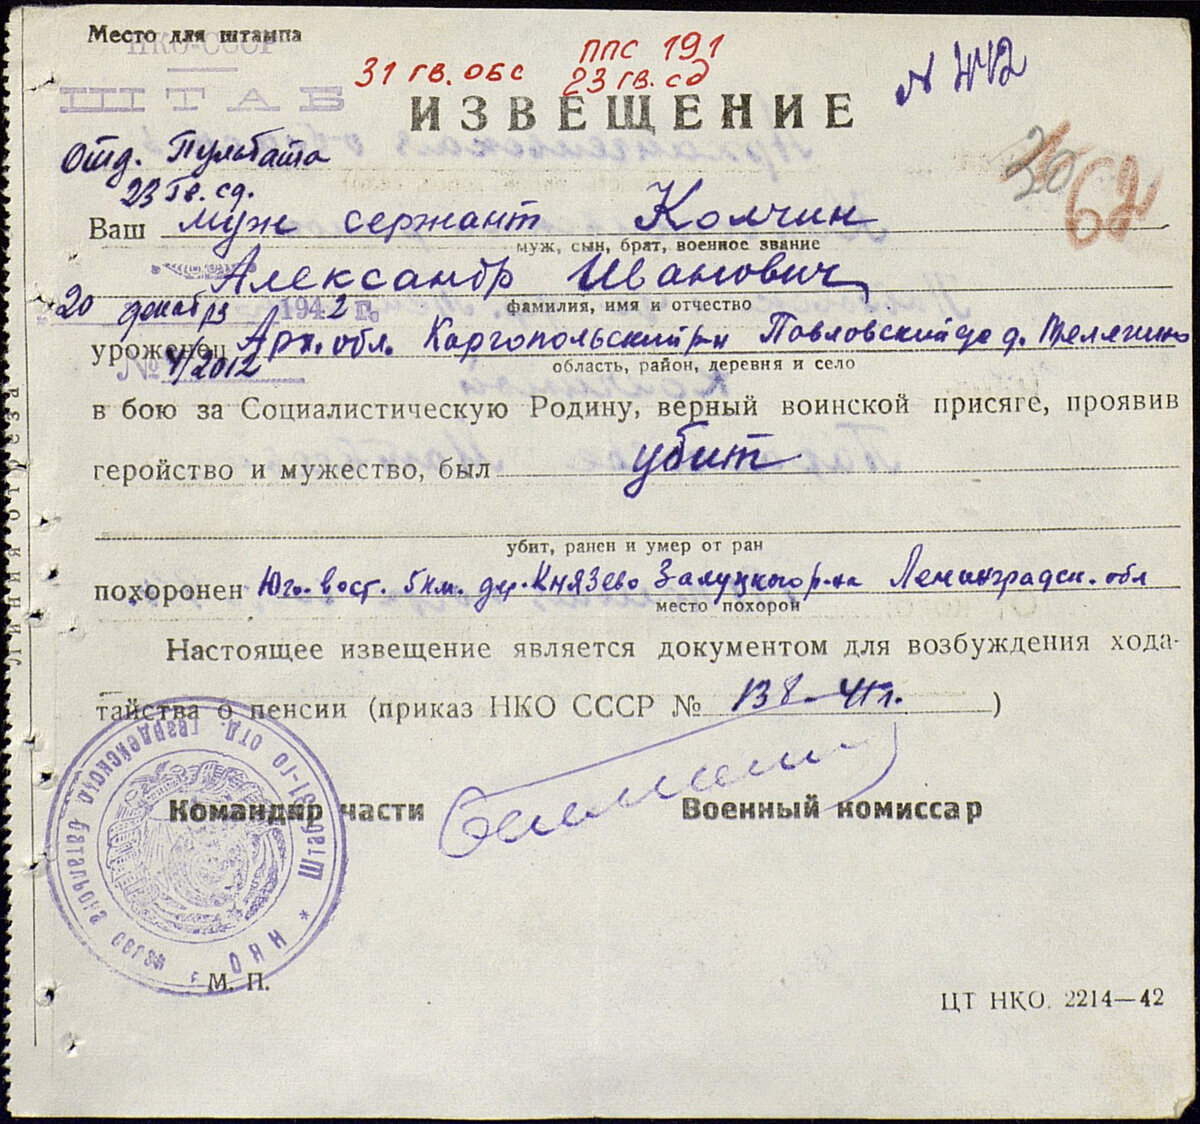 Место для штампа
НКО-СССР
ШТАБ
31 гв. обс
ППС 191
23 гв. сд
№ 442
ИЗВЕЩЕНИЕ
Отд. Пульбата
23 Гв. сд.
30
62
Ваш муж сержант Колчин
муж, сын, брат, военное звание
Александр Иванович
фамилия, имя и отчество
20 декабря 1942 г.
уроженец Арх. обл. Каргопольский р-н Павловский д.
область, район, деревня и село
№ 4/2012
в бою за Социалистическую Родину, верный воинской присяге, проявив
геройство и мужество, был убит
убит, ранен и умер от ран
похоронен Юго. вост. 5 км. дер. Князево Залуцкого р-на Ленинградск. обл
место похорон
Настоящее извещение является документом для возбуждения хода-
тайства о пенсии (приказ НКО СССР № 138-41 г. )
Командир части
Военный комиссар
Штаб 31-го отд. гвардейского батальона
НКО
М. П.
ЦТ НКО. 2214—42
Линия отреза